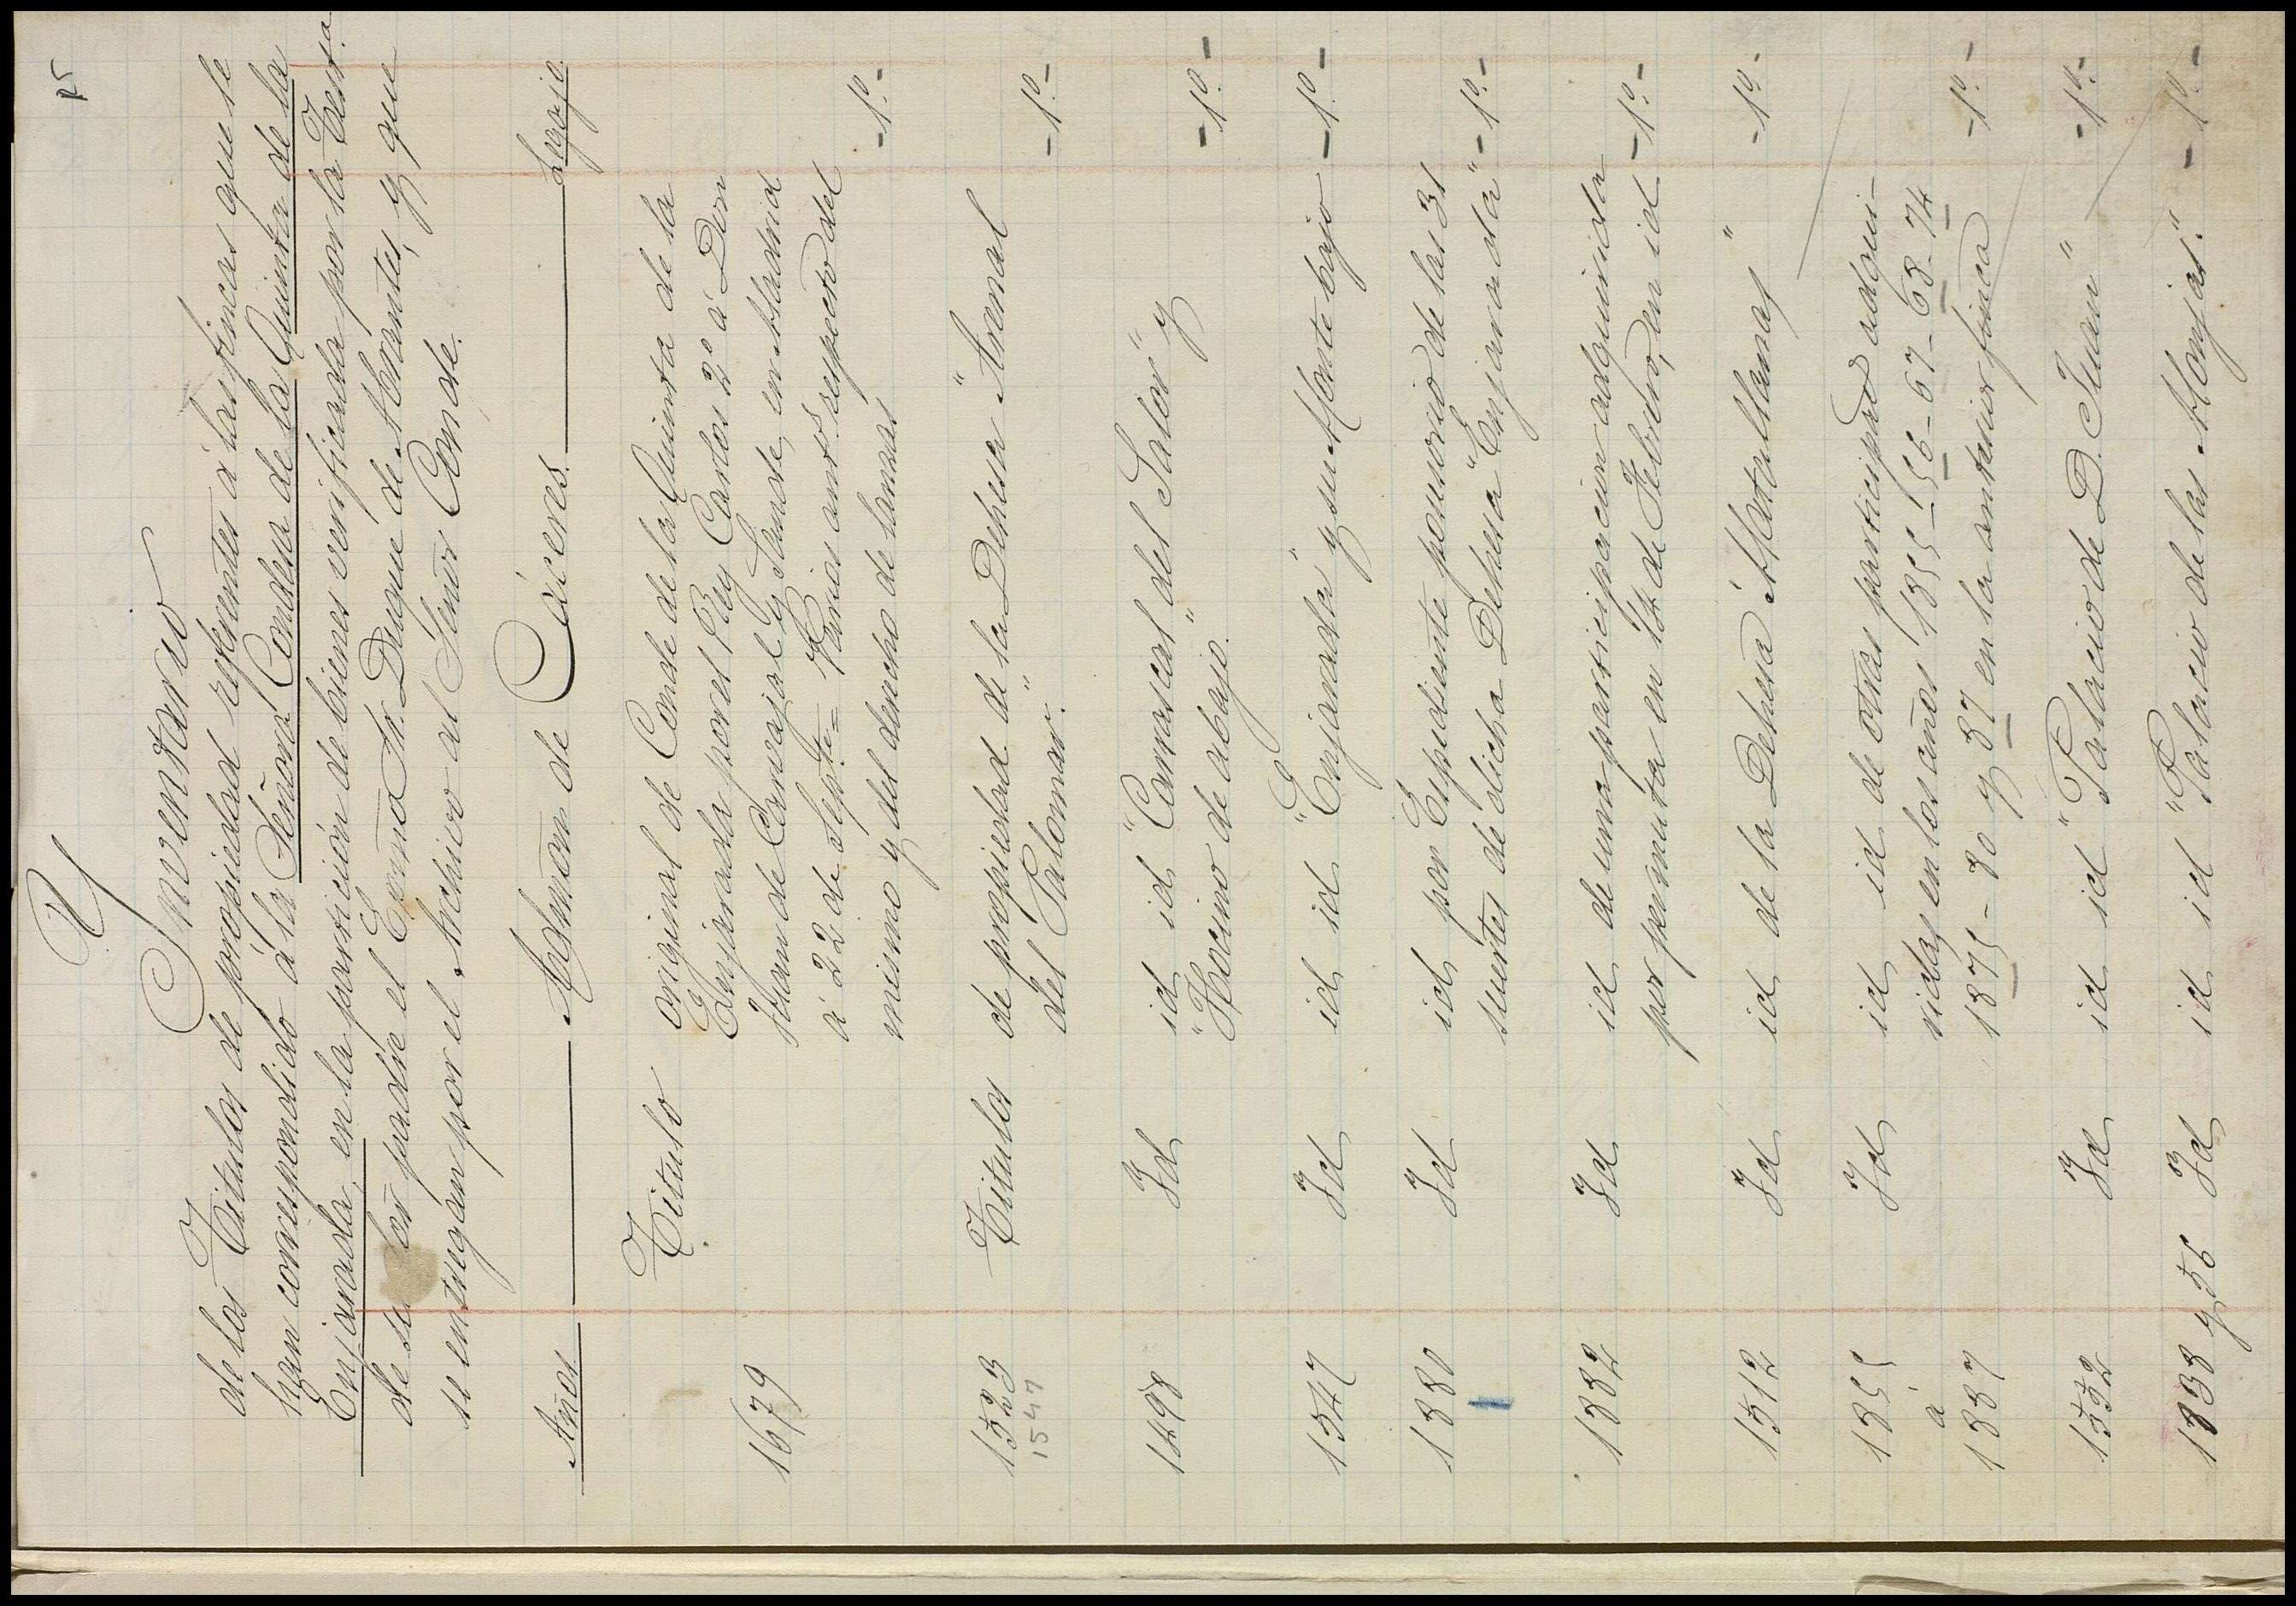 25
Inventario
de los Titulos de propiedad referentes á las fincas que le
han correspondido á la Señora Condesa de la Quinta de la
Enjarada, en la partición de bienes verificada por la Testa.
de su padre el Excmo Sr. Duque de Abrantes, y que
se entregan por el Archivo al Señor Conde.
Años Admon de Cáceres. Legajo.
Titulo original de Conde de la Quinta de la
Enjarada por el Rey Carlos 2º á Don
1679 Juan de Carvajal y Sande, en Madrid
á 22 de Septe= Varios antos respecto del - 1º -
mismo y del derecho de lanzas
1523 Titulos de propiedad de la Dehesa "Arenal
1547 del Palomar." - 1º -
1498 Id id id "Carrascal del Salor" y
"Hocino de abajo." - 1º -
1547 Id id id "Enjarada" y su Monte bajo - 1º -
1880 Id id por Expediente posesorio de las 31
suertes de dicha Dehesa "Enjarada" - 1º -
1882 Id id de una participacion adquirida
por permuta en 14 de Febrero, en id - 1º -
1512 Id id de la Dehesa "Matallanas" - 1º -
1855 Id id id de otras participes adqui-
á ridas en los años 1855 - 56 - 67 - 68 - 74
1887 1875 - 80 y 87 en la anterior finca - 1º -
1552 Id id id "Palacio de D. Juan" - 1º -
1838 y 56 Id id id "Palacio de las Monjas." - 1º -